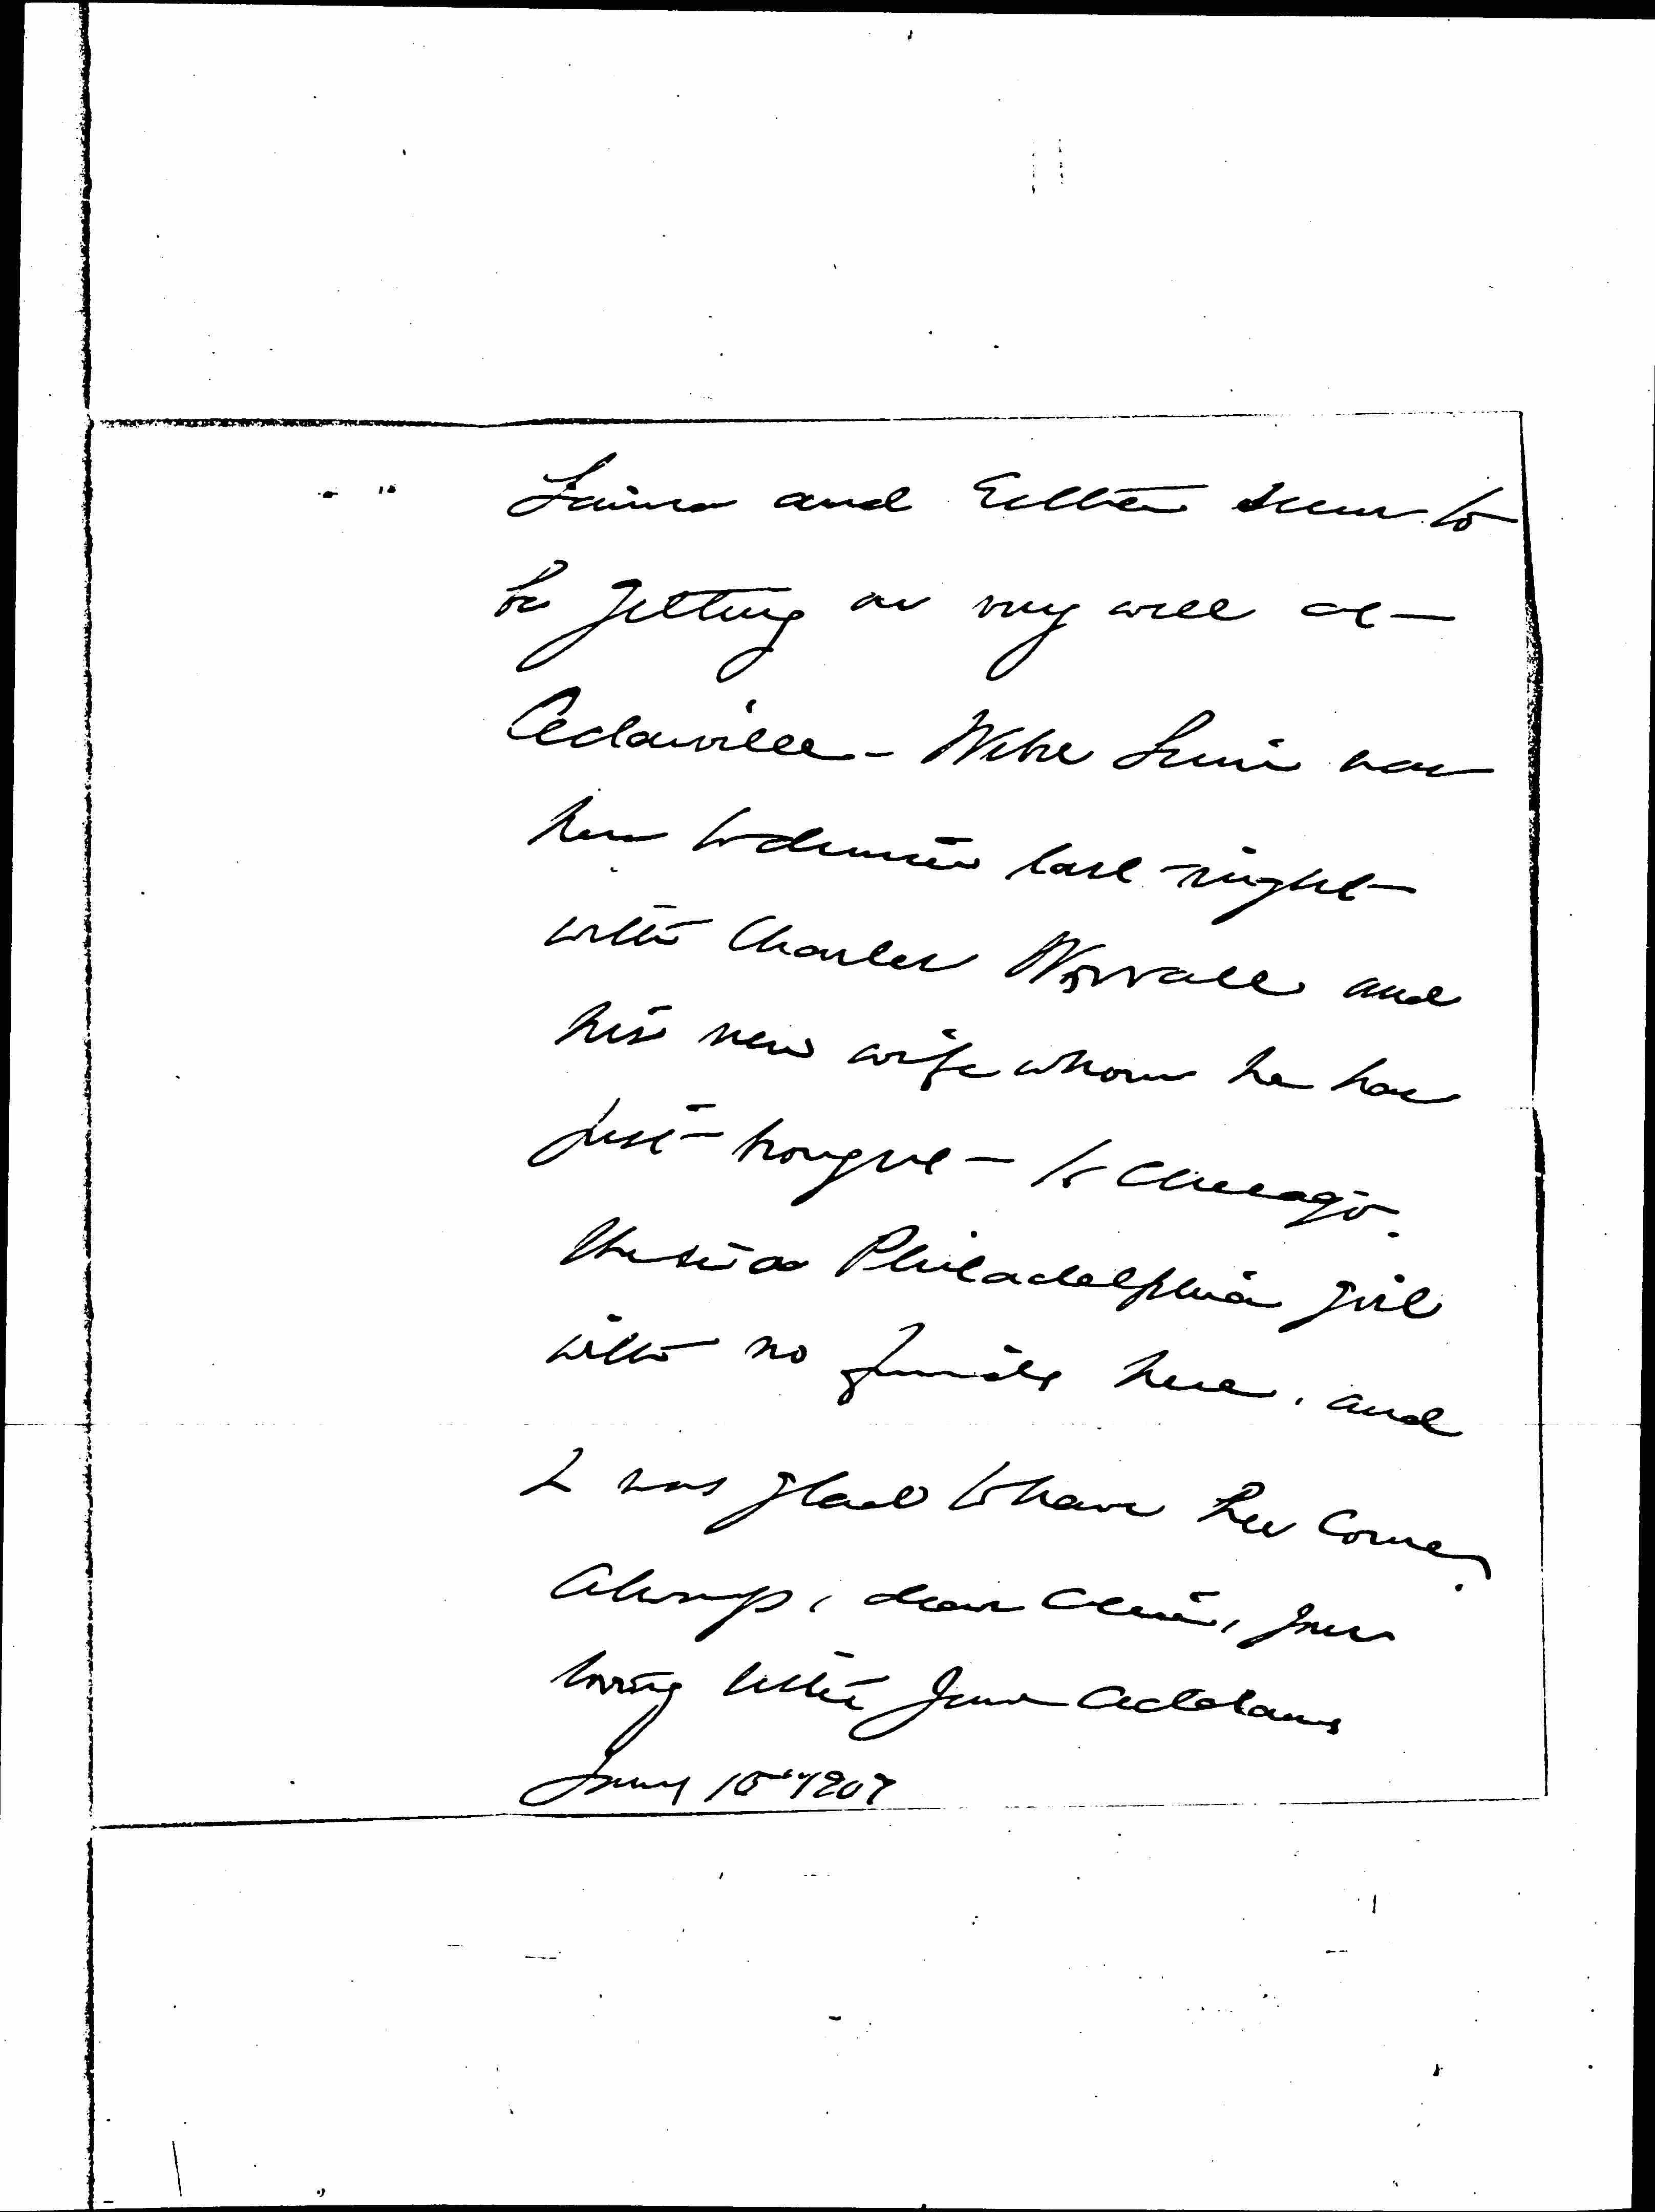 Laura and Esther seem to
be getting on very well at
Cedarville - Weber Linn was
here to dinner last night
with Charles Worrall and
his new wife whom he has
just brought to Chicago.
She is a Philadelphia girl
with no friends here, and
I was glad to have her come.
Always, dear Alice, your
loving sister Jane Addams
July 15" 1907